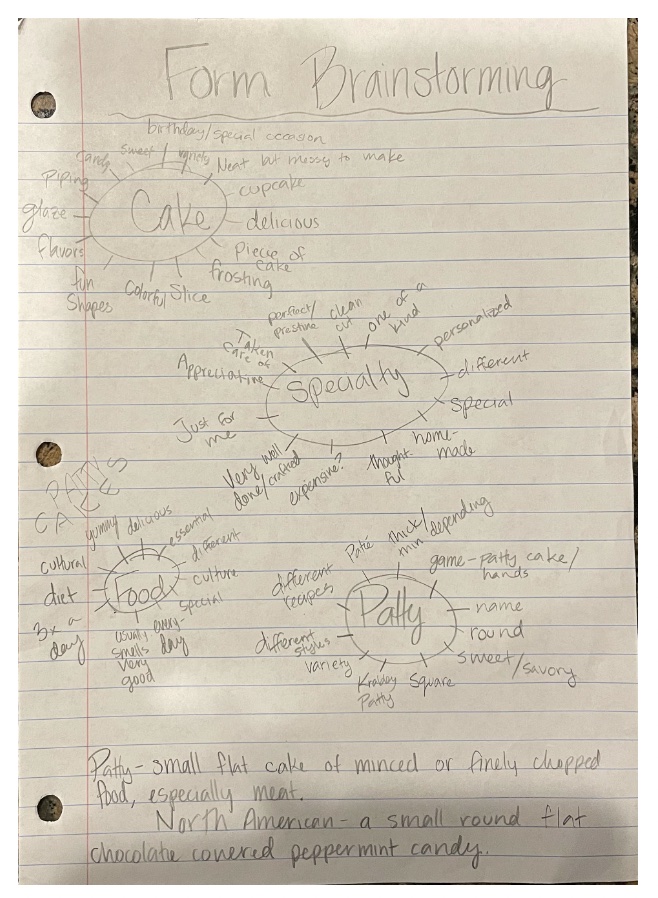 Form Brainstorming
birthday/special occasion
candy
sweet
variety
Neat but messy to make
piping
cupcake
glaze
Cake
delicious
flavors
Piece of
cake
frosting
fun
Shapes
Colorful
Slice
perfect/
prestine
clean
cut
one of a
kind
personalized
Taken
care of
Appreciative
Specialty
different
Special
Just for
me
Very well
done/crafted
expensive?
thought-
ful
home-
made
PATTY'S
CAKES
yummy
delicious
essential
different
cultural
culture
diet
Food
special
3x a
day
usually
smells
very
good
every-
day
Patié
thick/
min depending
game-patty cake/
hands
different
recipes
Patty
name
round
different
styles
variety
sweet/savory
Krabby
Patty
Square
Patty- small flat cake of minced or finely chopped
food, especially meat.
North American- a small round flat
chocolate covered peppermint candy.